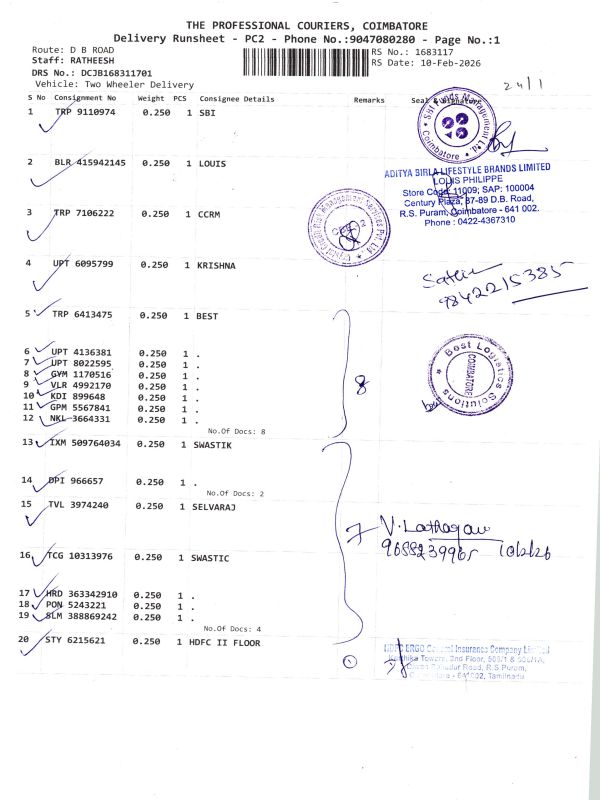 THE PROFESSIONAL COURIERS, COIMBATORE
Delivery Runsheet - PC2 - Phone No.:9047080280 - Page No.:1
Route: D B ROAD
RS No.: 1683117
Staff: RATHEESH
RS Date: 10-Feb-2026
DRS No.: DCJB168311701
Vehicle: Two Wheeler Delivery
24/1
S No Consignment No Weight PCS Consignee Details Remarks Seal & Signature
1 TRP 9110974 0.250 1 SBI
Coimbatore
2 BLR 415942145 0.250 1 LOUIS
ADITYA BIRLA LIFESTYLE BRANDS LIMITED
LOUIS PHILIPPE
Store Code: 11009; SAP: 100004
Century Plaza, 87-89 D.B. Road,
R.S. Puram, Coimbatore - 641 002.
Phone : 0422-4367310
3 TRP 7106222 0.250 1 CCRM
4 UPT 6095799 0.250 1 KRISHNA
9842215385
5 TRP 6413475 0.250 1 BEST
Best Logistics Solutions
COIMBATORE
6 UPT 4136381 0.250 1 .
7 UPT 8022595 0.250 1 .
8 GYM 1170516 0.250 1 .
9 VLR 4992170 0.250 1 .
10 KDI 899648 0.250 1 .
11 GPM 5567841 0.250 1 .
12 NKL 3664331 0.250 1 .
8
No.Of Docs: 8
13 IXM 509764034 0.250 1 SWASTIK
14 DPI 966657 0.250 1 .
No.Of Docs: 2
15 TVL 3974240 0.250 1 SELVARAJ
7
9688239965 10/2/26
16 TCG 10313976 0.250 1 SWASTIC
17 HRD 363342910 0.250 1 .
18 PON 5243221 0.250 1 .
19 SLM 388869242 0.250 1 .
No.Of Docs: 4
20 STY 6215621 0.250 1 HDFC II FLOOR
1
HDFC ERGO General Insurance Company Limited
Towers, 2nd Floor,
Road, R.S.Puram,
Tamilnadu